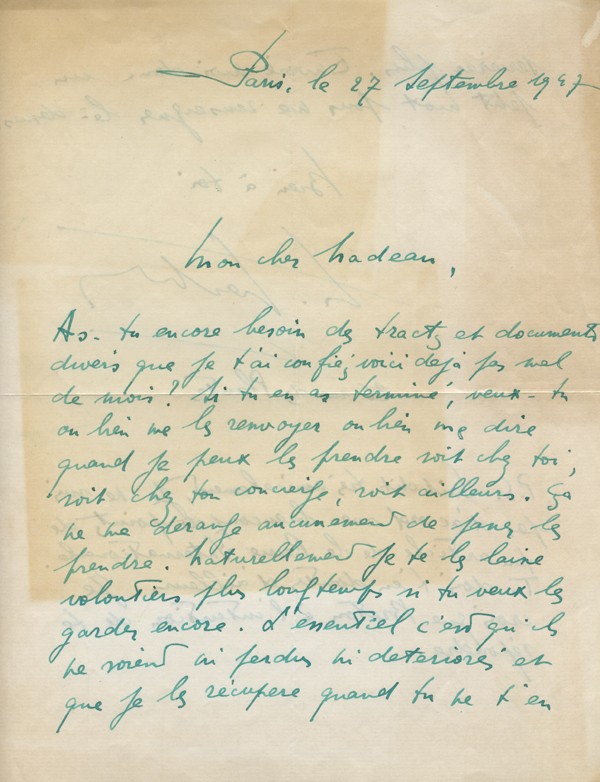 Paris, le 27 Septembre 1947
Mon cher Nadeau,
As-tu encore besoin des tracts et documents
divers que je t'ai confiés voici déjà pas mal
de mois? Si tu en as terminé, veux-tu
ou bien me les renvoyer ou bien me dire
quand je peux les prendre soit chez toi,
soit chez ton concierge, soit ailleurs. Ça
ne me dérange aucunement de passer les
prendre. Naturellement je te les laisse
volontiers plus longtemps si tu veux les
garder encore. L'essentiel c'est qu'ils
ne soient ni perdus ni détériorés et
que je les récupère quand tu ne t'en